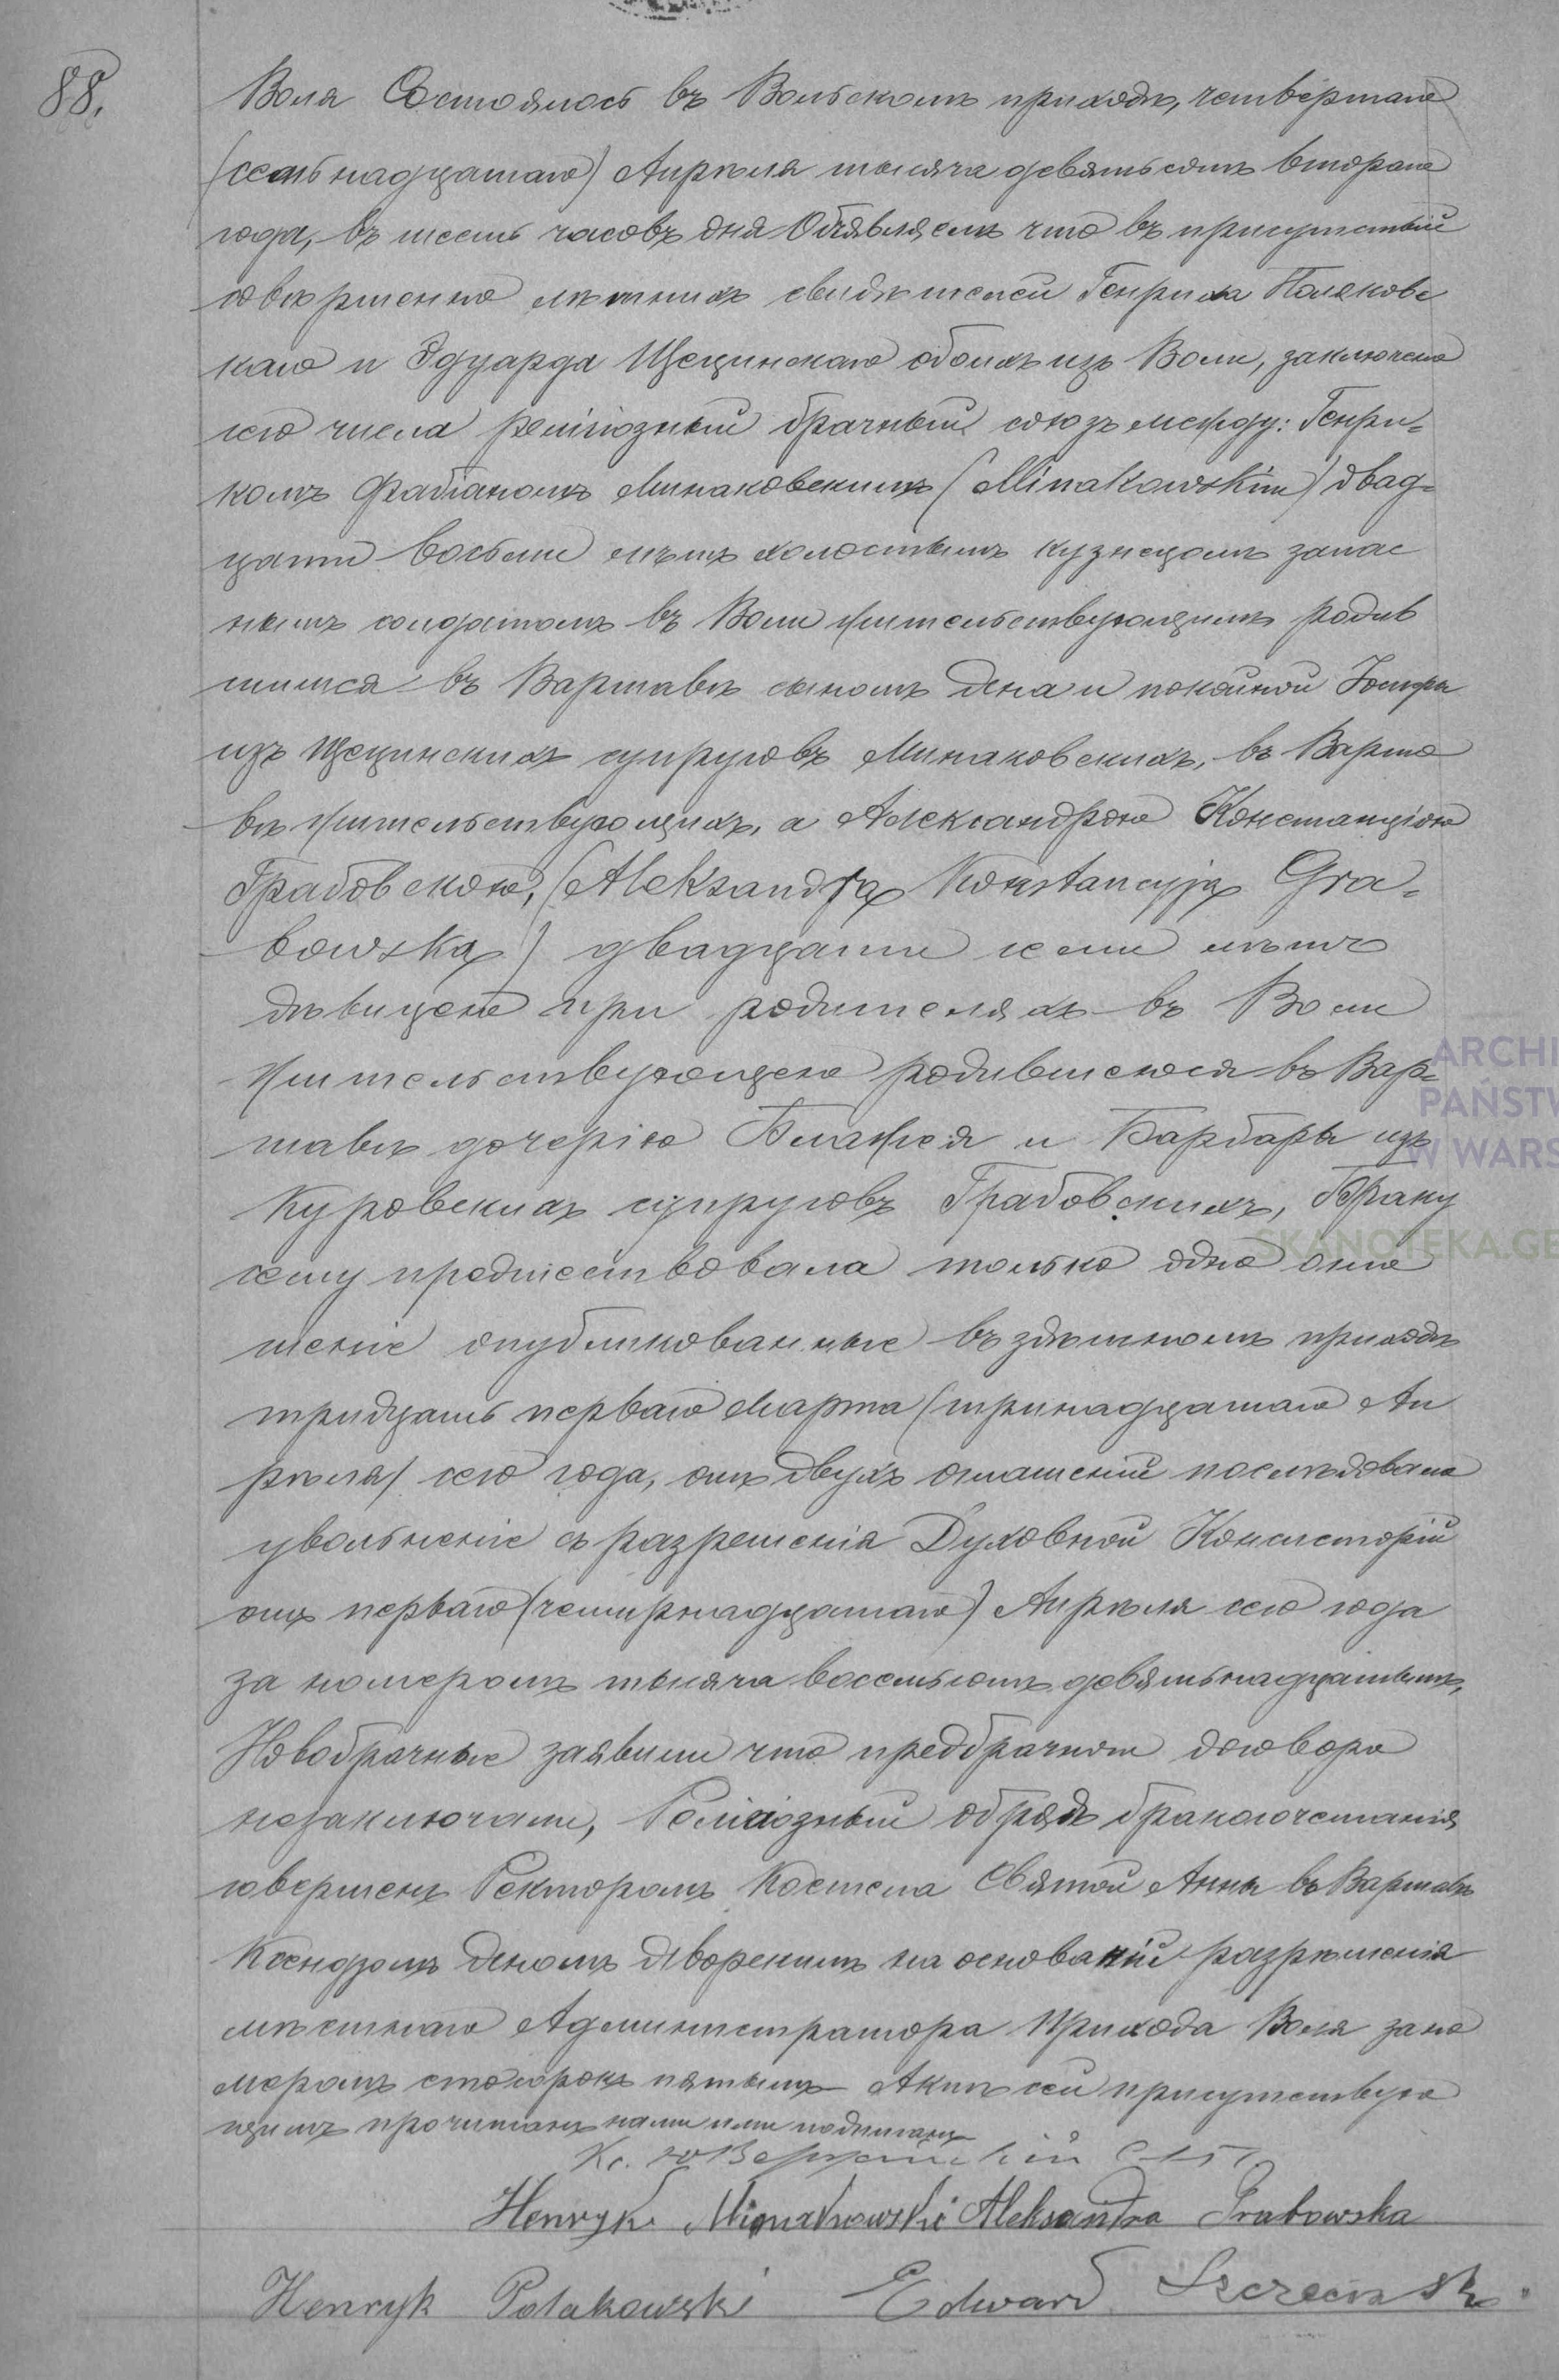 88.
Воля Состоялось въ Вольскомъ приходѣ, четвёртаго
(семьнадцатаго) Апрѣля тысяча девятьсотъ втораго
года, въ шесть часовъ дня Объявляемъ что въ присутствіи
совершенно лѣтнихъ свидѣтелей Генриха Поляковс
каго и Эдуарда Щецинскаго обоихъ изъ Воли, заключенъ
сего числа религіозный брачный союзъ между: Генри-
комъ Фабіаномъ Минаковскимъ (Minakowskim) двад-
цати восьми лѣтъ холостымъ кузнецомъ запас
нымъ солдатомъ въ Воли жительствующимъ родив
шимся въ Варшавѣ сыномъ Яна и покойной Юзефы
изъ Щецинскихъ супруговъ Минаковскихъ, въ Варша
вѣ жительствующихъ, а Александрою Констанціею
Грабовскою, (Aleksandrą Konstancyją Gra-
bowską) двадцати семи лѣтъ
дѣвицею при родителяхъ въ Воли
жительствующею родившеюся въ Вар-
шавѣ дочерію Блажея и Барбары изъ
Куровскихъ супруговъ Грабовскихъ, Браку
сему предшествовала только одно огла
шеніе опубликованные въ здѣшномъ приходѣ
тридцать перваго Марта (тринадцатаго Ап
рѣля) сего года, отъ двухъ оглашеній послѣдовало
увольненіе съ разрешенія Духовной Консисторіи
отъ перваго (четырнадцатаго) Апрѣля сего года
за номеромъ тысяча восемьсотъ девятьнадцатымъ,
Новобрачные заявили что предбрачнаго договора
незаключали, Религіозный обрядъ бракосочетанія
совершенъ Ректоромъ Костела Святой Анны въ Варшавѣ
Ксендзомъ Яномъ Дворскимъ на основаніи разрѣшенія
мѣстнаго Администратора Прихода Воля за но
меромъ сто сорокъ пятымъ Актъ сей присутствую
щимъ прочитанъ нами ими подписанъ
Кс.
Henryk Minakowski Aleksandra Grabowska
Henryk Polakowski Edward Szczecinski